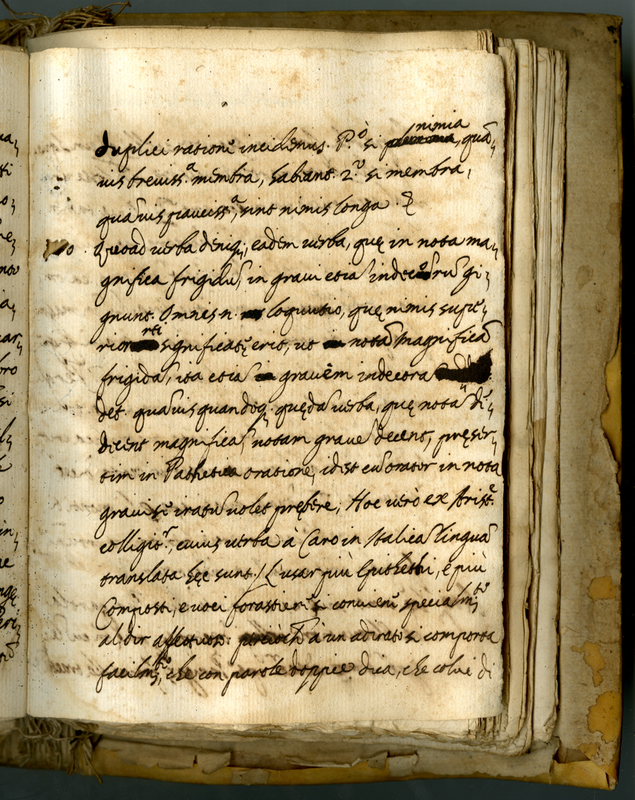 nimia
duplici ratione incidemus. P.º si , quā
uis breviss.ª membra, habiant. 2.º si membra,
quāuis graviss.ª, sint nimis longa.
quoad uerba deniq;, eadem uerba, quę in nota ma
gnifica frigidū, in graui etiā indecorū gi
gnunt. Omnes n. loquutio, quę nimis supe
rior significati; erit, ut notā magnificā
rti
frigidā, ita etiā gravem indecorā
det. quāuis quandoq; quędā uerba, quę notā di
dicent magnificā, notam grave decent, pręser
tim in Pathetica oratione, idest cū orator in nota
graui se iratū uolet prębere; Hoc uerò ex Arist.e
colligit.r, cuius uerba à Caro in Italicā linguā
translata hęc sunt. L'usar più Epitheti, e più
Composti, e uoci forastiere si conuiene specialm.te
al dir affettuoso: a un adirato si comporta
facilm.te, che con parole doppie dica, che colui di